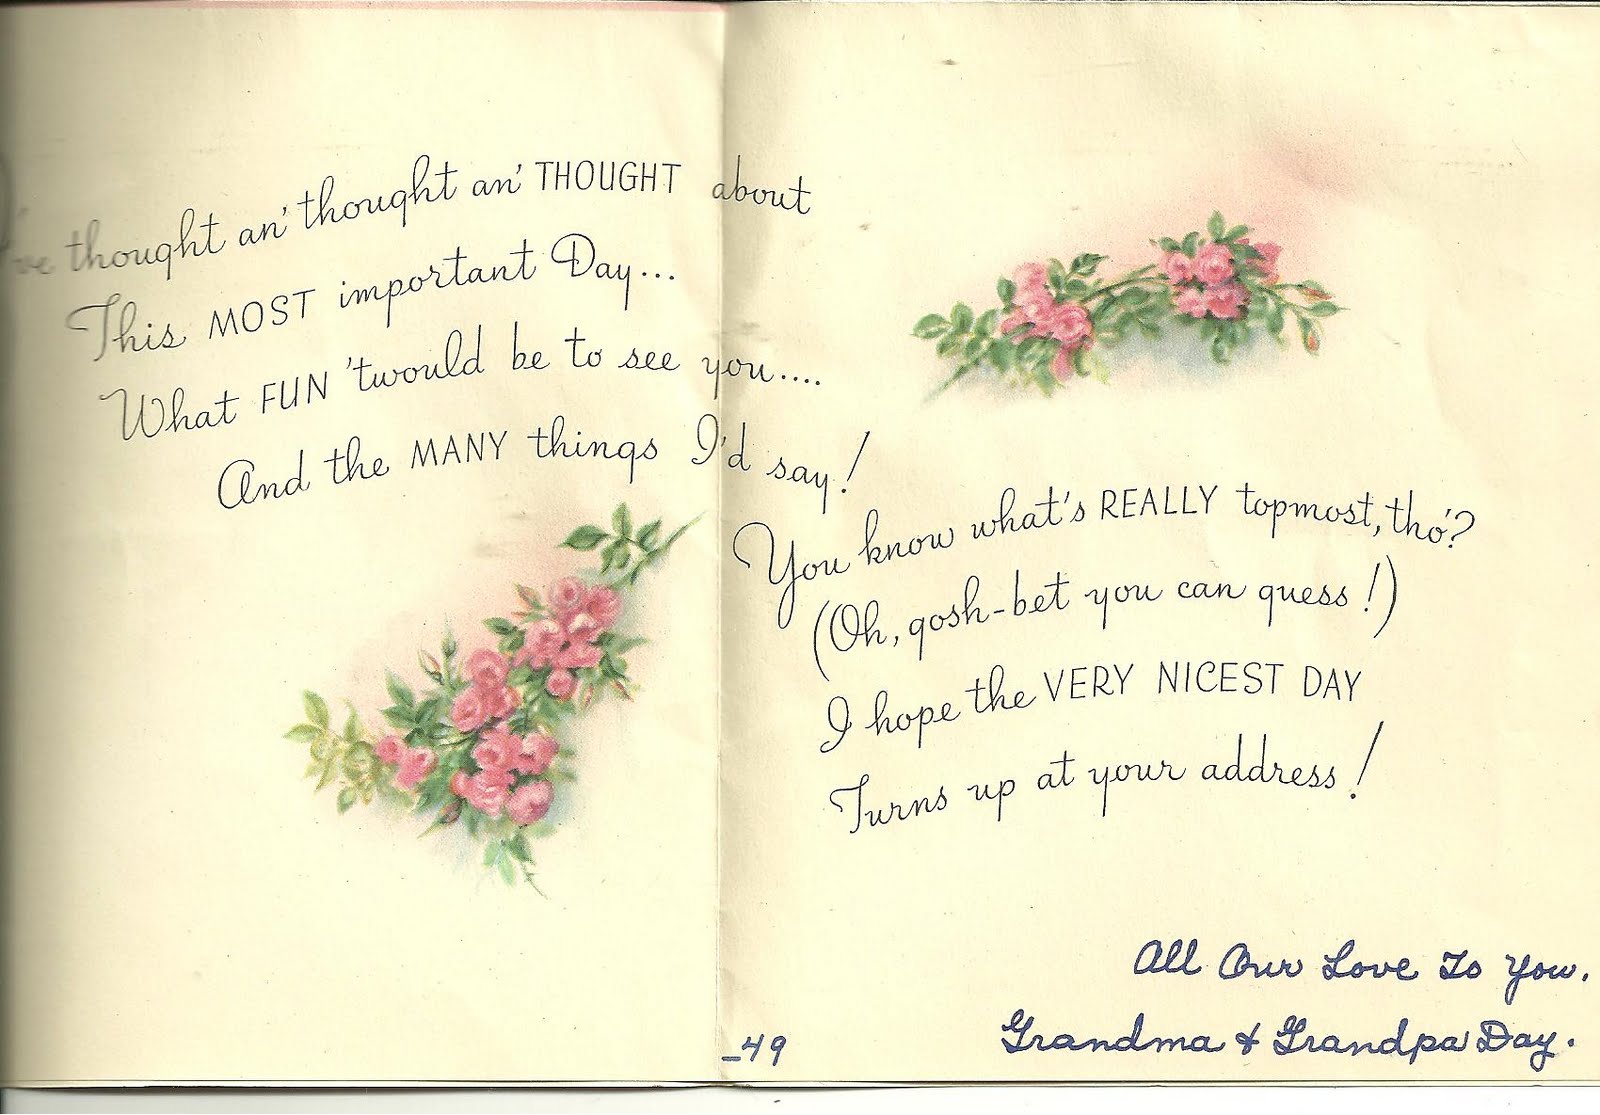 I've thought an' thought an' THOUGHT about
This MOST important Day...
What FUN 'twould be to see you....
And the MANY things I'd say!
You know what's REALLY topmost, tho'?
(Oh, gosh-bet you can guess!)
I hope the VERY NICEST DAY
Turns up at your address!
All Our Love To You.
Grandma & Grandpa Day.
-49